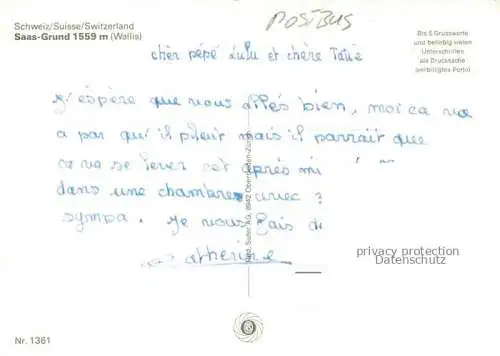 Schweiz/Suisse/Switzerland
Saas-Grund 1559 m (Wallis)
POSTBUS
Bis 5 Grussworte
und beliebig vielen
Unterschriften
als Drucksache
(verbilligtes Porto)
chèr pépé Lulu et chère Tatie
j'éspère que vous allés bien, moi ca va
a par qu'il pleut mais il parrait que
ca va se lever cet après mi
dans une chambre avec ?
sympa. Je vous fais de
Catherine
privacy protection
Datenschutz
Nr. 1361